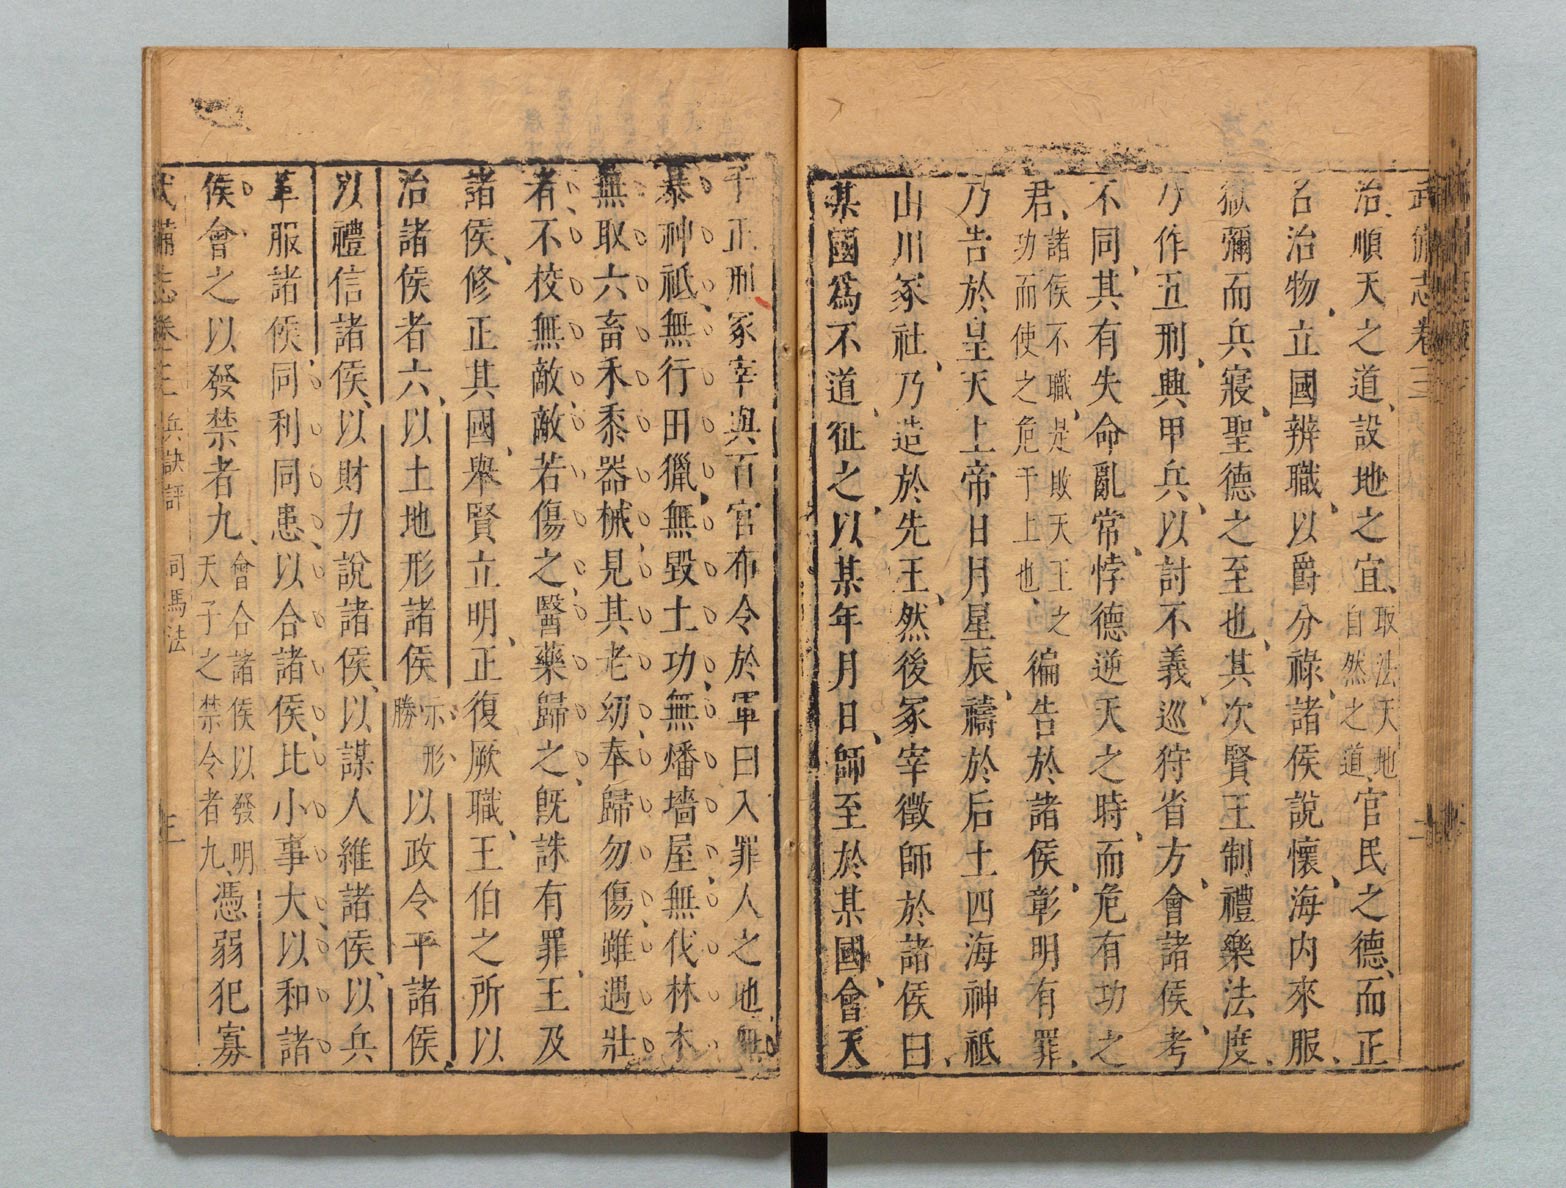 武備志卷三
治順天之道設地之宜取法天地自然之道官民之德而正
名治物立國辨職以爵分祿諸侯說懷海内來服
獄彌而兵寢聖德之至也其次賢王制禮樂法度
乃作五刑興甲兵以討不義巡狩省方會諸侯考
不同其有失命亂常悖德逆天之時而危有功之
君諸侯不職是敗天王之功而使之危于上也徧告於諸侯彰明有罪
乃告於皇天上帝日月星辰禱於后土四海神祇
山川冢社乃造於先王然後冢宰徵師於諸侯曰
某國為不道征之以某年月日師至於某國會天
子正刑冢宰與百官布令於軍曰入罪人之地無
暴神祇無行田獵無毀土功無燔墻屋無伐林木
無取六畜禾黍器械見其老幼奉歸勿傷雖遇壯
者不校無敵敵若傷之醫藥歸之旣誅有罪王及
諸侯修正其國舉賢立明正復厥職王伯之所以
治諸侯者六以土地形諸侯示形勝以政令平諸侯
以禮信諸侯以財力說諸侯以謀人維諸侯以兵
革服諸侯同利同患以合諸侯比小事大以和諸
侯會之以發禁者九會合諸侯以發明天子之禁令者九憑弱犯寡
武備志卷三 兵訣評 司馬法 三